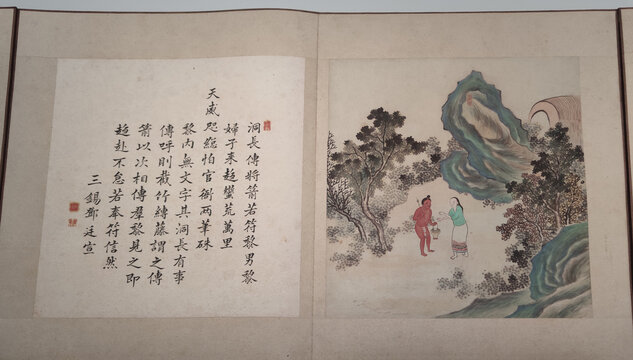 洞長傳將箭若符黎男黎
婦子来趍蠻荒萬里
天威咫總怕官衙兩筆硃
黎內無文字其洞長有事
傳呼則截竹縛藤謂之傳
箭以次相傳羣黎見之即
趍赴不怠若奉符信然
三錫鄧廷宣